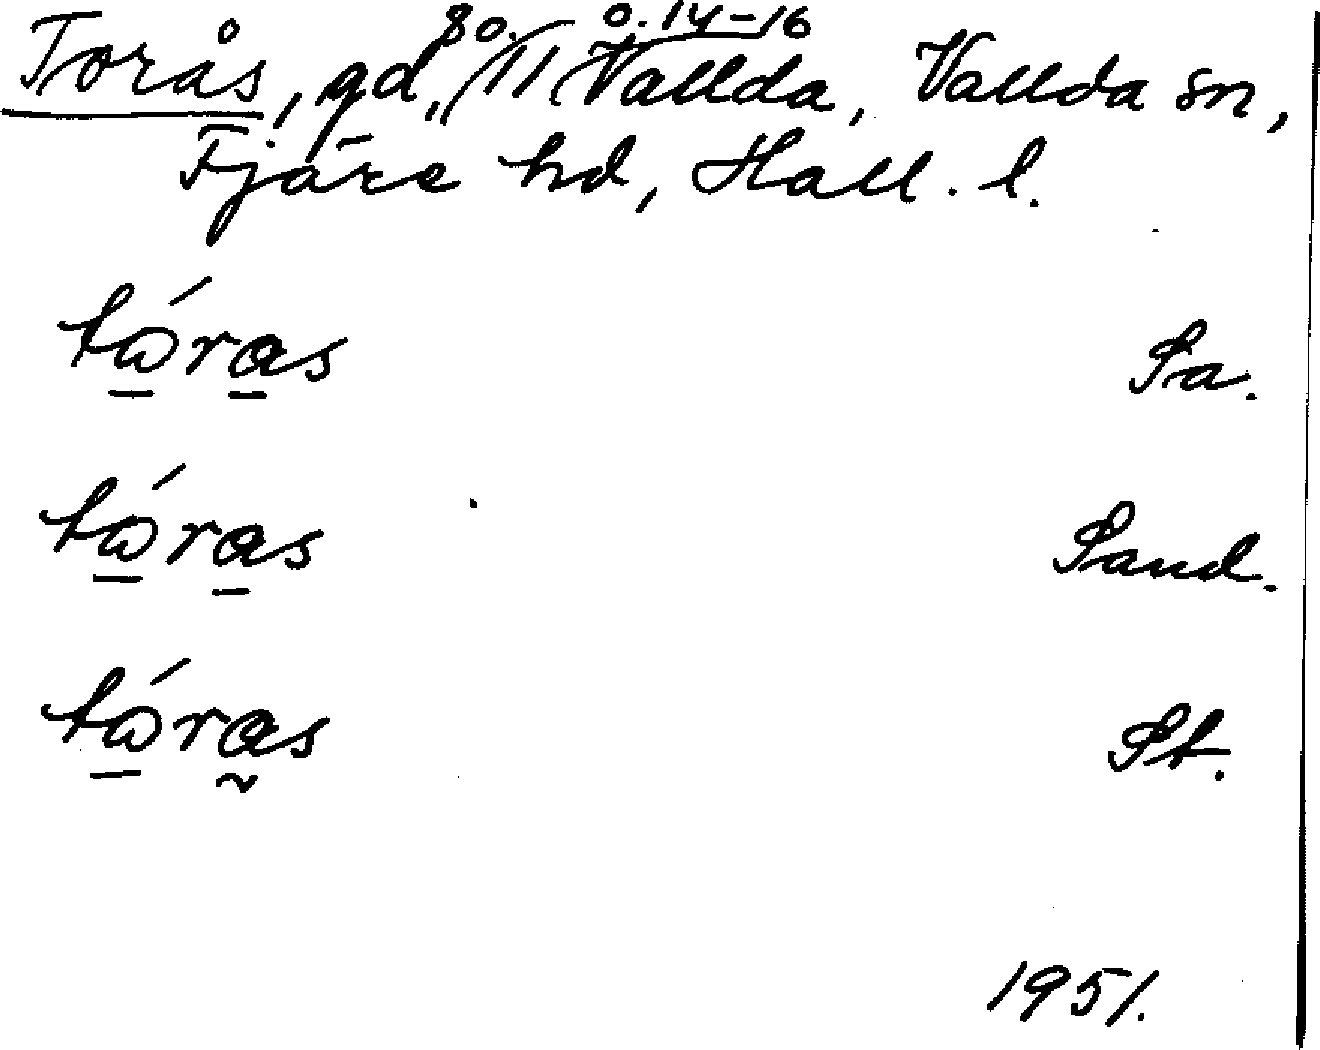 80. 0.14-16
Torås, gd, 11 Vallda, Vallda sn,
Fjäre hd, Hall. l.
tώras Sa.
tώras Sand.
tώras St.
1951.